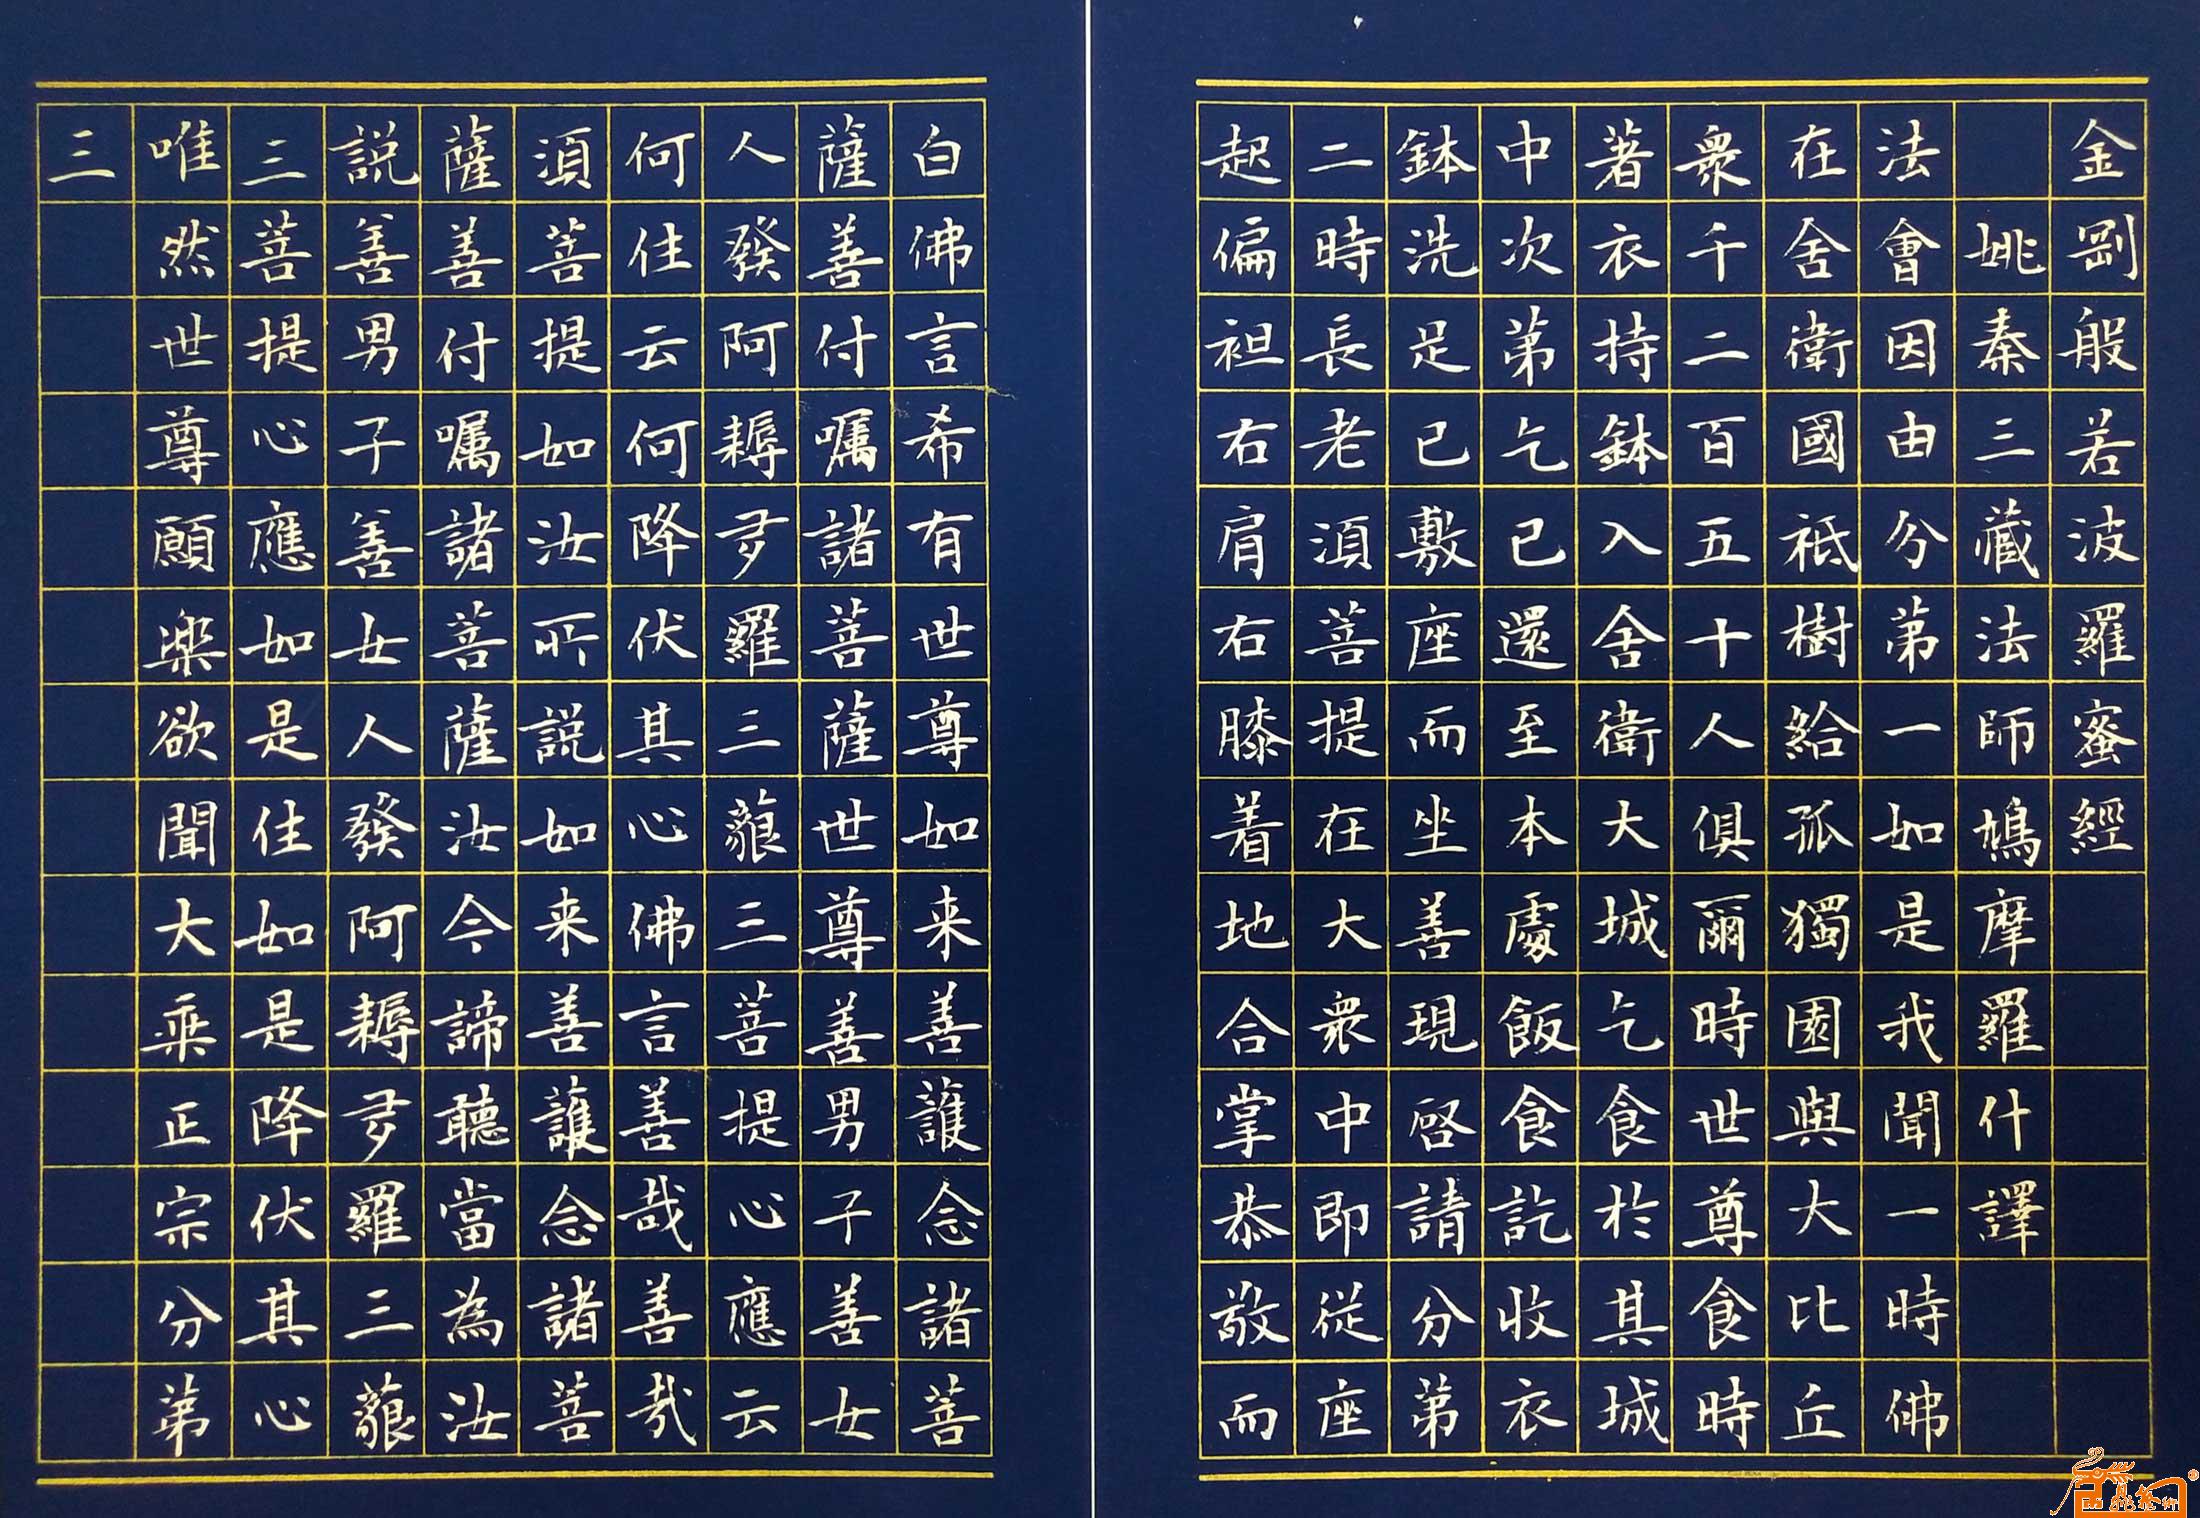 金剛般若波羅蜜經
姚秦三藏法師鳩摩羅什譯
法會因由分第一如是我聞一時佛
在舍衛國祗樹給孤獨園與大比丘
衆千二百五十人俱爾時世尊食時
著衣持鉢入舍衛大城乞食於其城
中次第乞已還至本處飯食訖收衣
鉢洗足已敷座而坐善現啓請分第
二時長老湏菩提在大衆中即從座
起偏袒右肩右膝着地合掌恭敬而
白佛言希有世尊如来善護念諸菩
薩善付嘱諸菩薩世尊善男子善女
人發阿耨多羅三藐三菩提心應云
何住云何降伏其心佛言善哉善哉
湏菩提如汝所説如来善護念諸菩
薩善付嘱諸菩薩汝今諦聽當為汝
説善男子善女人發阿耨多羅三藐
三菩提心應如是住如是降伏其心
唯然世尊願樂欲聞大乘正宗分第
三